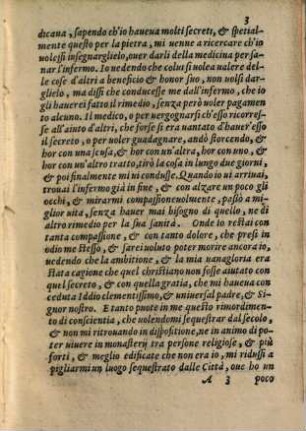 3
dicana, sapendo ch'io haueua molti secreti, & spetial-
mente questo per la pietra, mi uenne a ricercare ch'io
uolessi insegnarglielo, ouer darli della medicina per sa-
nar l'infermo. Io uedendo che colui si uolea ualere del-
le cose d'altri a beneficio & honor suo, non uolsi dar-
glielo, ma dissi che conducesse me dall'infermo, che io
gli hauerei fatto il rimedio, senza però uoler pagamen
to alcuno. Il medico, o per uergognarsi ch'esso ricorres-
se all'aiuto d'altri, che forse si era uantato d'hauer'esso
il secreto, o per uoler guadagnare, andò storcendo, &
hor con una scusa, & hor con un'altra, hor con uno, &
hor con un'altro tratto, tirò la cosa in lungo due giorni,
& poi finalmente mi ui condusse. Quando io ui arriuai,
trouai l'infermo già in fine, & con alzare un poco gli
occhi, & mirarmi compassioneuolmente, passò a mi-
glior uita, senza hauer mai bisogno di quello, ne di
altro rimedio per la sua sanità. Onde io restai con
tanta compassione, & con tanto dolore, che presi in
odio me stesso, & sarei uoluto poter morire ancora io,
uedendo che la ambitione, & la mia uanagloria era
stata cagione che quel christiano non fosse aiutato con
quel secreto, & con quella gratia, che mi haueua con
ceduta Iddio clementissimo, & uniuersal padre, & Si-
gnor nostro. E tanto puote in me questo rimordimen-
to di conscientia, che uolendomi sequestrar dal secolo,
& non mi ritrouando in dispositione, ne in animo di po-
ter uiuere in monasterij tra persone religiose, & più
forti, & meglio edificate che non era io, mi ridussi a
pigliarmi un luogo sequestrato dalle Città, oue ho un
A 3 poco